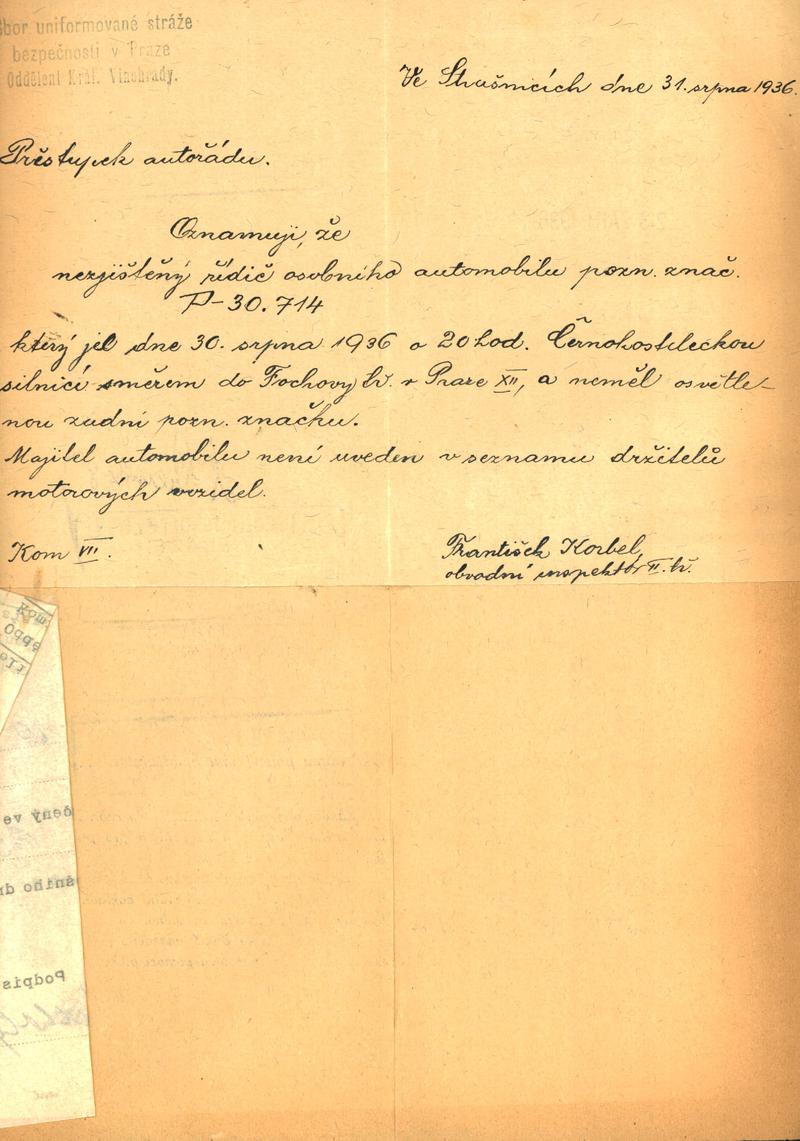 Sbor uniformované stráže
bezpečnosti v Praze
Oddělení Král. Vinohrady.
Ve Strašnicích dne 31. srpna 1936.
Přestupek autořádu.
Oznamuji, že
nezjištěný řidič osobního automobilu pozn. znač.
P-30.714
který jel dne 30. srpna 1936 o 20 hod. Černokosteleckou
silnicí směrem do Fochovy tř. v Praze XII, a neměl osvětle-
nou zadní pozn. značku.
Majitel automobilu není uveden v seznamu držitelů
motorových vozidel.
Kom VII.
František Korbel,
obvodní inspektor II. tř.
Kom.
čený ve
šního dn
Podpis